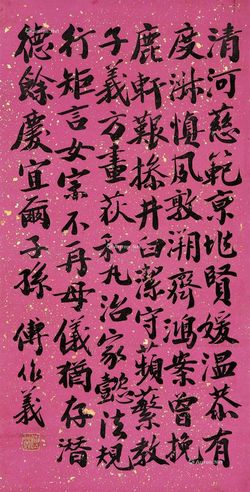 清河慈範京兆賢媛温恭有
度淑慎夙敦溯齊鴻案曾挽
鹿軒艱操井臼潔守蘋蘩教
子義方畫荻和丸治家懿法規
行矩言女宗不再母儀猶存潛
德餘慶宜爾子孫 傅作義